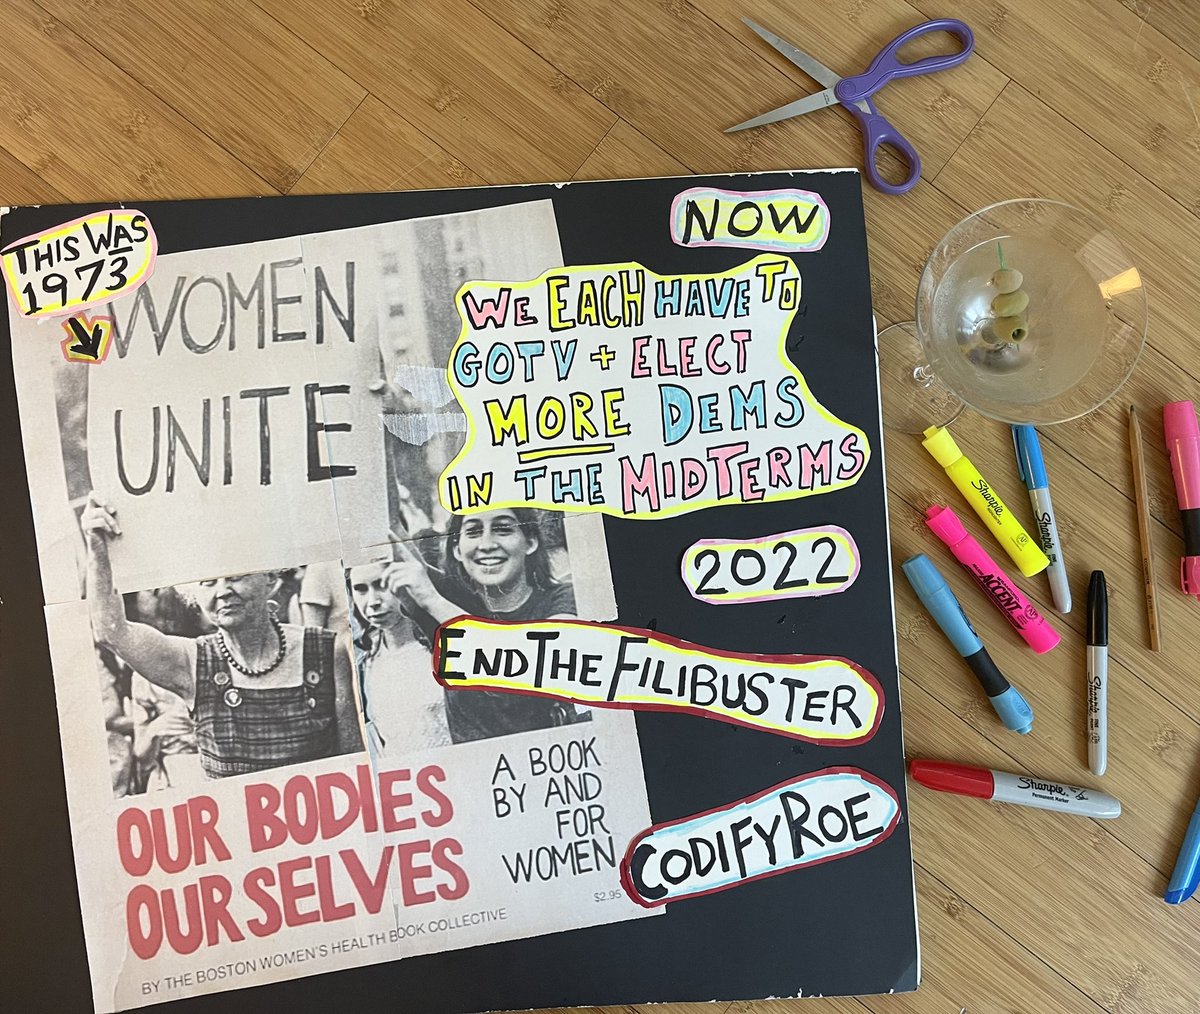 THIS WAS
1973
WOMEN
UNITE
OUR BODIES
OURSELVES
A BOOK
BY AND
FOR
WOMEN
$2.95
BY THE BOSTON WOMEN'S HEALTH BOOK COLLECTIVE
NOW
WE EACH HAVE TO
GOTV + ELECT
MORE DEMS
IN THE MIDTERMS
2022
END THE FILIBUSTER
CODIFY ROE
Sharpie
Sharpie
ACCENT
Sharpie
Permanent Marker